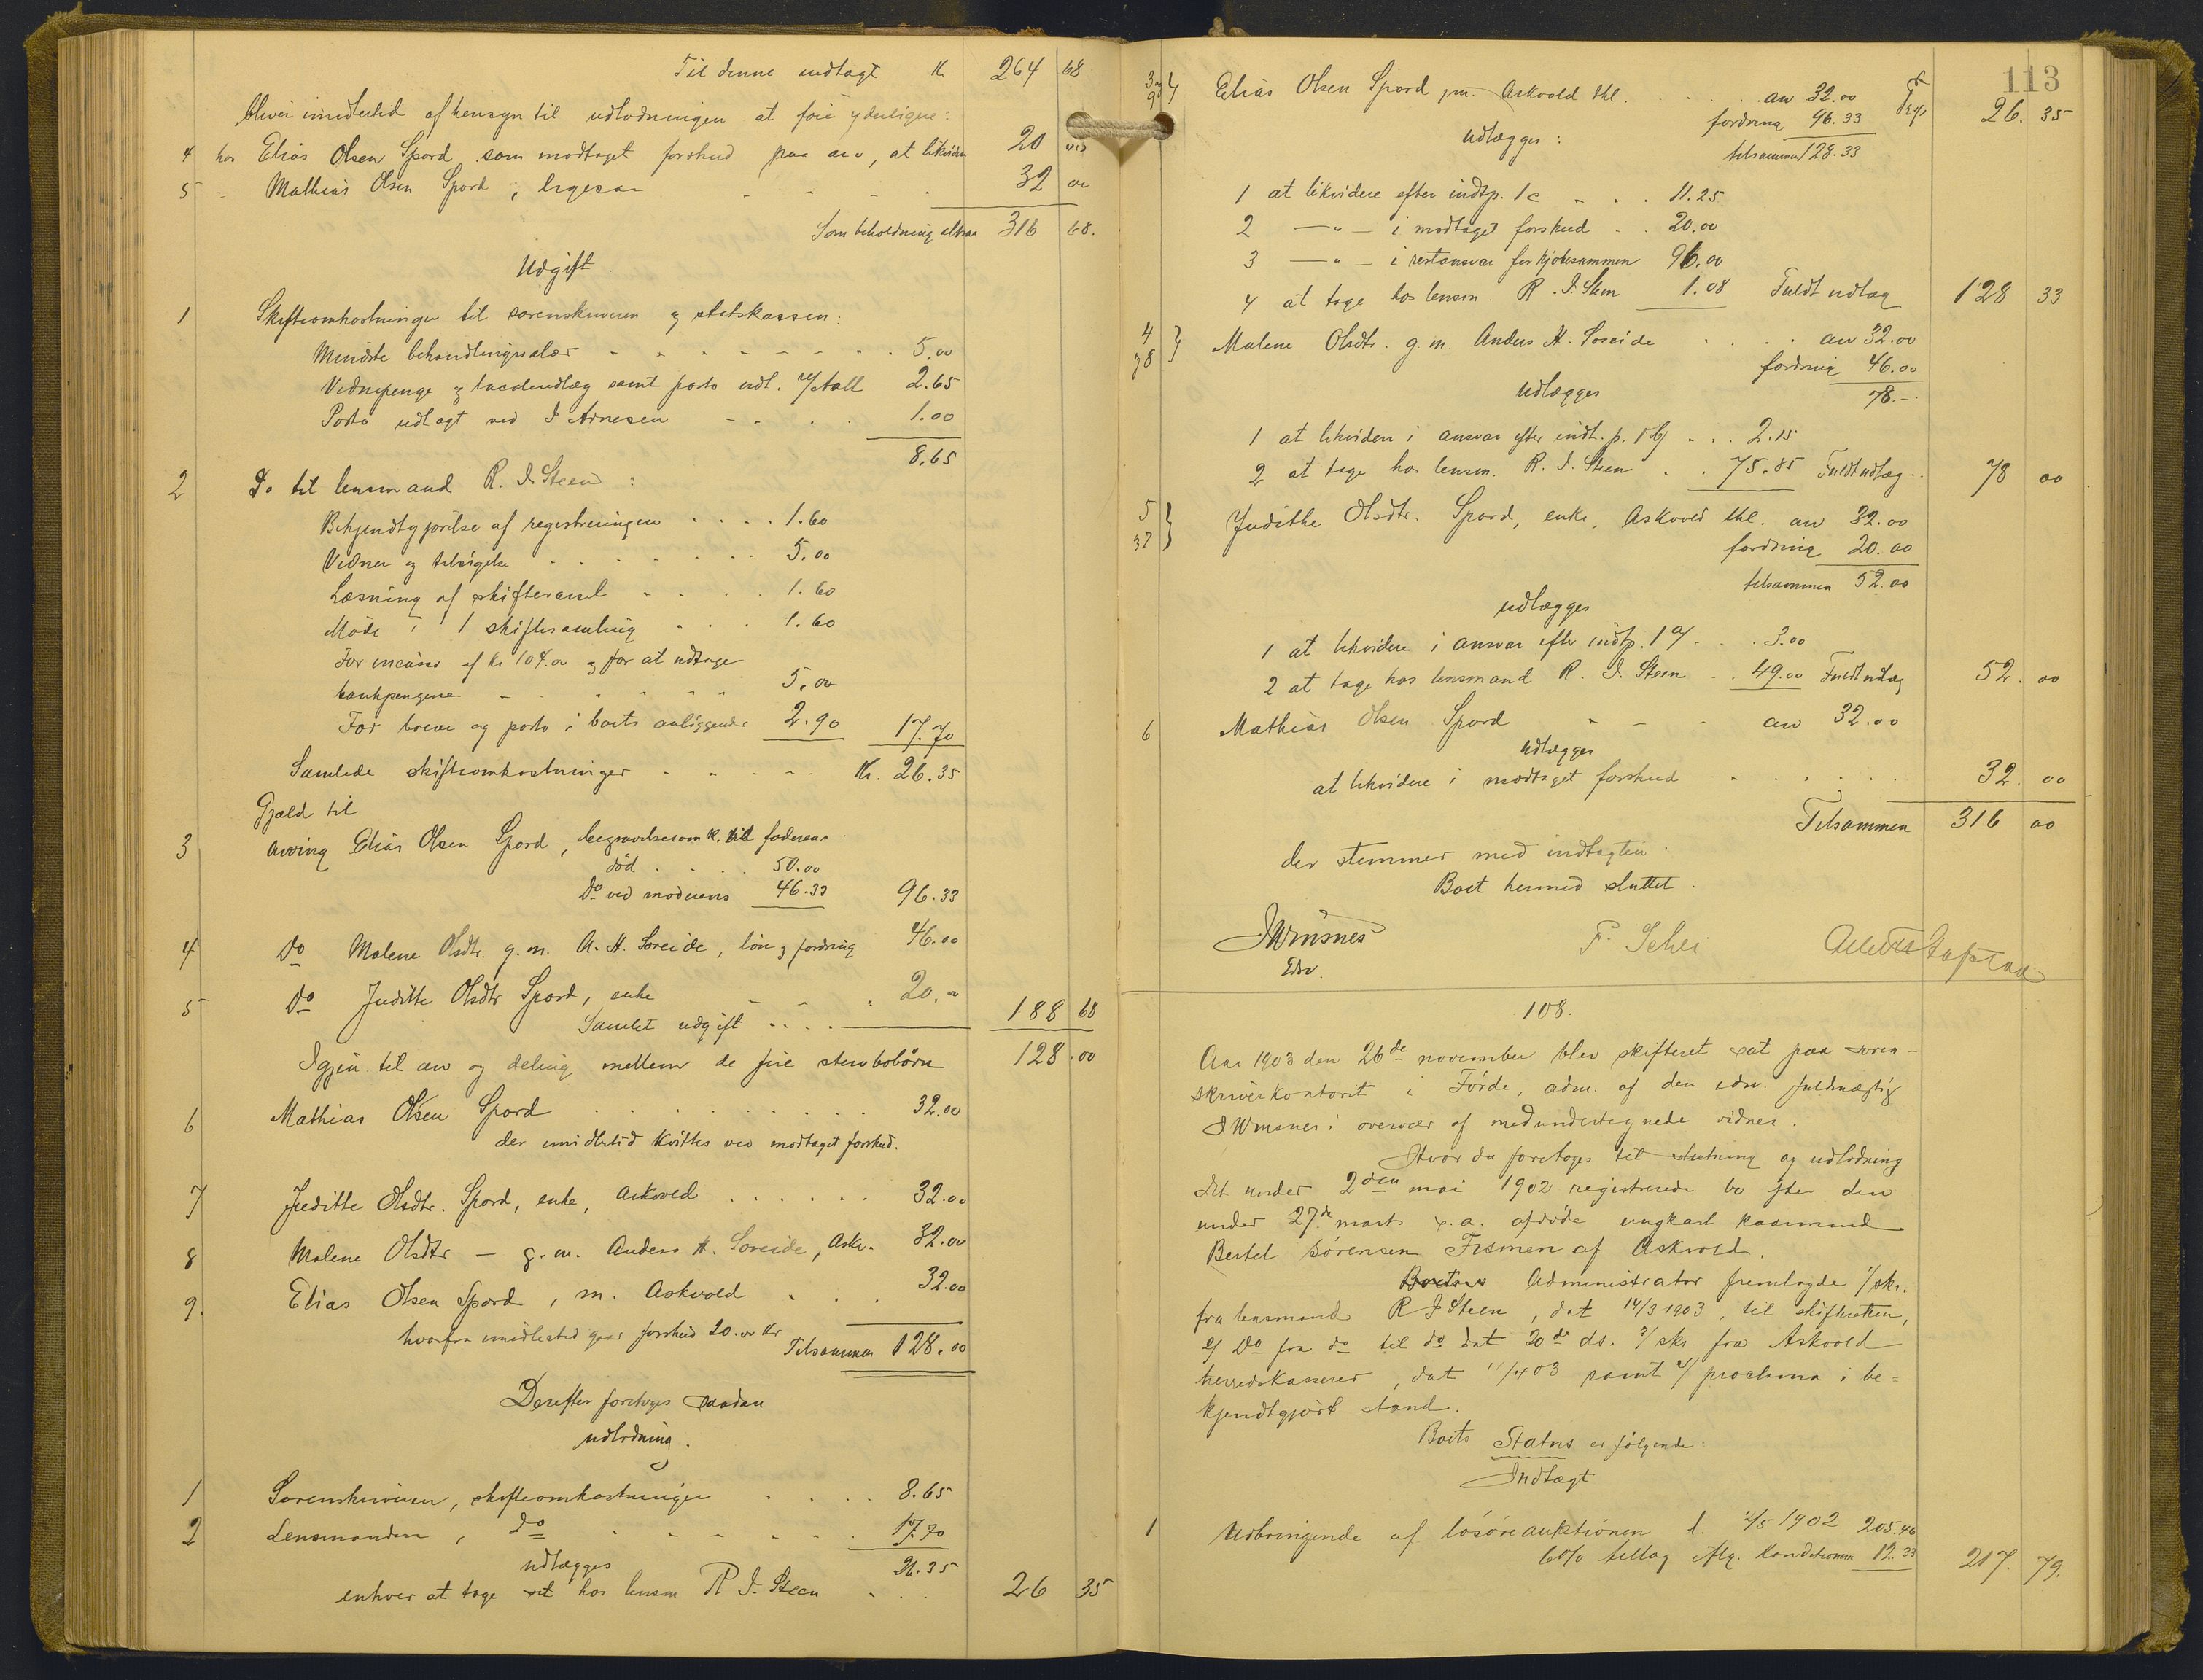 Til denne indtagt K 264 68
bliver imidlertid af hensyn til udlodningen at føie yderligere:
4 hos Elias Olsen Spord som modtaget forskud paa arv, at likvidere 20 00
5 " Mathias Olsen Spord, ligesaa - - - 32 00
Som beholdning altsaa 316 68.
Udgift
1 Skifteomkostninger til sorenskriveren og statskassen:
Mindste behandlingssalær . . . . 5.00
Vidnepenge og udlæg samt porto 2.65
Porto udlagt ved I Arnesen - . . 1.00
8.65
2 Do til lensmand R. I. Steen:
Bekjendtgjørelse af registreringen . . . . 1.60
Vidner og tilsigelse . . . . 5.00
Læsning af skiftevarsel . . . . 1.60
Møde i 1 skiftesamling . . . 1.60
For incasso af kr 104.00 og for at udtage
bankpengene - . . . . 5.00
For breve og porto i boets anliggender 2.90 17.70
Samlede skifteomkostninger . . . . . Kr. 26.35
Gjæld til
3 arving Elias Olsen Spord, begravelsesomk. ved faderens
død . . . . 50.00
Do ved moderens 46.33 96.33
4 Do Malene Olsdtr. g. m. A. H. Soreide, løn og fordring 46.00
5 Do Juditte Olsdtr Spord, enke - - . 20.00
Samlet udgift . . . . 188 68
Igjen til arv og deling mellem de fire sterbobørn 128.00
6 Mathias Olsen Spord . . . . . . 32.00
der imidlertid kvittes ved modtaget forskud.
7 Juditte Olsdtr. Spord, enke, Askvold . . . . . . 32.00
8 Malene Olsdtr - g. m. Anders H. Soreide, Askv. 32.00
9. Elias Olsen Spord, m. Askvold . . . 32.00
hvorfra imidlertid gaar forskud 20.00 Kr
Tilsammen 128.00
Derefter foretoges saadan
udlodning.
1 Sorenskriveren, skifteomkostninger . . . . 8.65
2 Lensmanden, do . . . . . . 17.70
udlægges 26.35
enhver at tage sit hos lensm R I. Steen . . . 26 35
113
3 9 Elias Olsen Spord, m. Askvold thl. . . . . arv 32.00 Trp 26.35
fordring 96.33
udlægges: tilsammen 128.33
1 at likvidere efter indtp. 1c - . . 11.25
2 — " — i modtaget forskud . . 20.00
3 — " — i restansvar for kjøbesummen 96.00
4 at tage hos lensm. R. I. Steen 1.08 Fuldt udlæg 128 33
4 8 Malene Olsdtr. g. m. Anders H. Soreide . . . . arv 32.00
fordring 46.00
udlægges 78.-
1 at likvidere i ansvar efter indt. p. 1 b . . . 2.15
2 at tage hos lensm. R. I. Steen . . 75.85 Fuldt udlæg . . 78 00
5 37 Judithe Olsdtr. Spord, enke, Askvold thl. arv 32.00
fordring 20.00
tilsammen 52.00
udlægges
1 at likvidere i ansvar efter indtp. 1 a . . . 3.00
2 at tage hos lensmand R. I. Steen . . 49.00 Fuldt udlæg 52.00
6 Mathias Olsen Spord - - - arv 32.00
udlægges
at likvidere i modtaget forskud . . . . . . 32.00
Tilsammen 316 00
der stemmer med indtægten.
Boet hermed sluttet.
Edsv.
108.
Aar 1903 den 26de november blev skifteret sat paa soren-
skriverkontoret i Førde, adm. af den edsv. fuldmægtig
i overvær af medundertegnede vidner.
Hvor da foretoges til slutning og udlodning
det under 2den mai 1902 registrerede bo efter den
under 27de marts s. a. afdøde ungkarl kaarmand
Bertel Sørensen Fismen af Askvold.
Administrator fremlagde 1/ skr.
fra lensmand R I Steen, dat 14/3 1903, til skifteretten,
2/ Do fra do til do dat 20de ds. 3/ skr fra Askvold
herredskasserer, dat 11/4 03 samt 4/ proclama i be=
kjendtgjort stand.
Boets Status er følgende.
Indtægt
1 Udbringende af løsøreauktionen d. 2/5 1902 205.46
6% tillæg iflg. konditionen 12.33 217. 79.